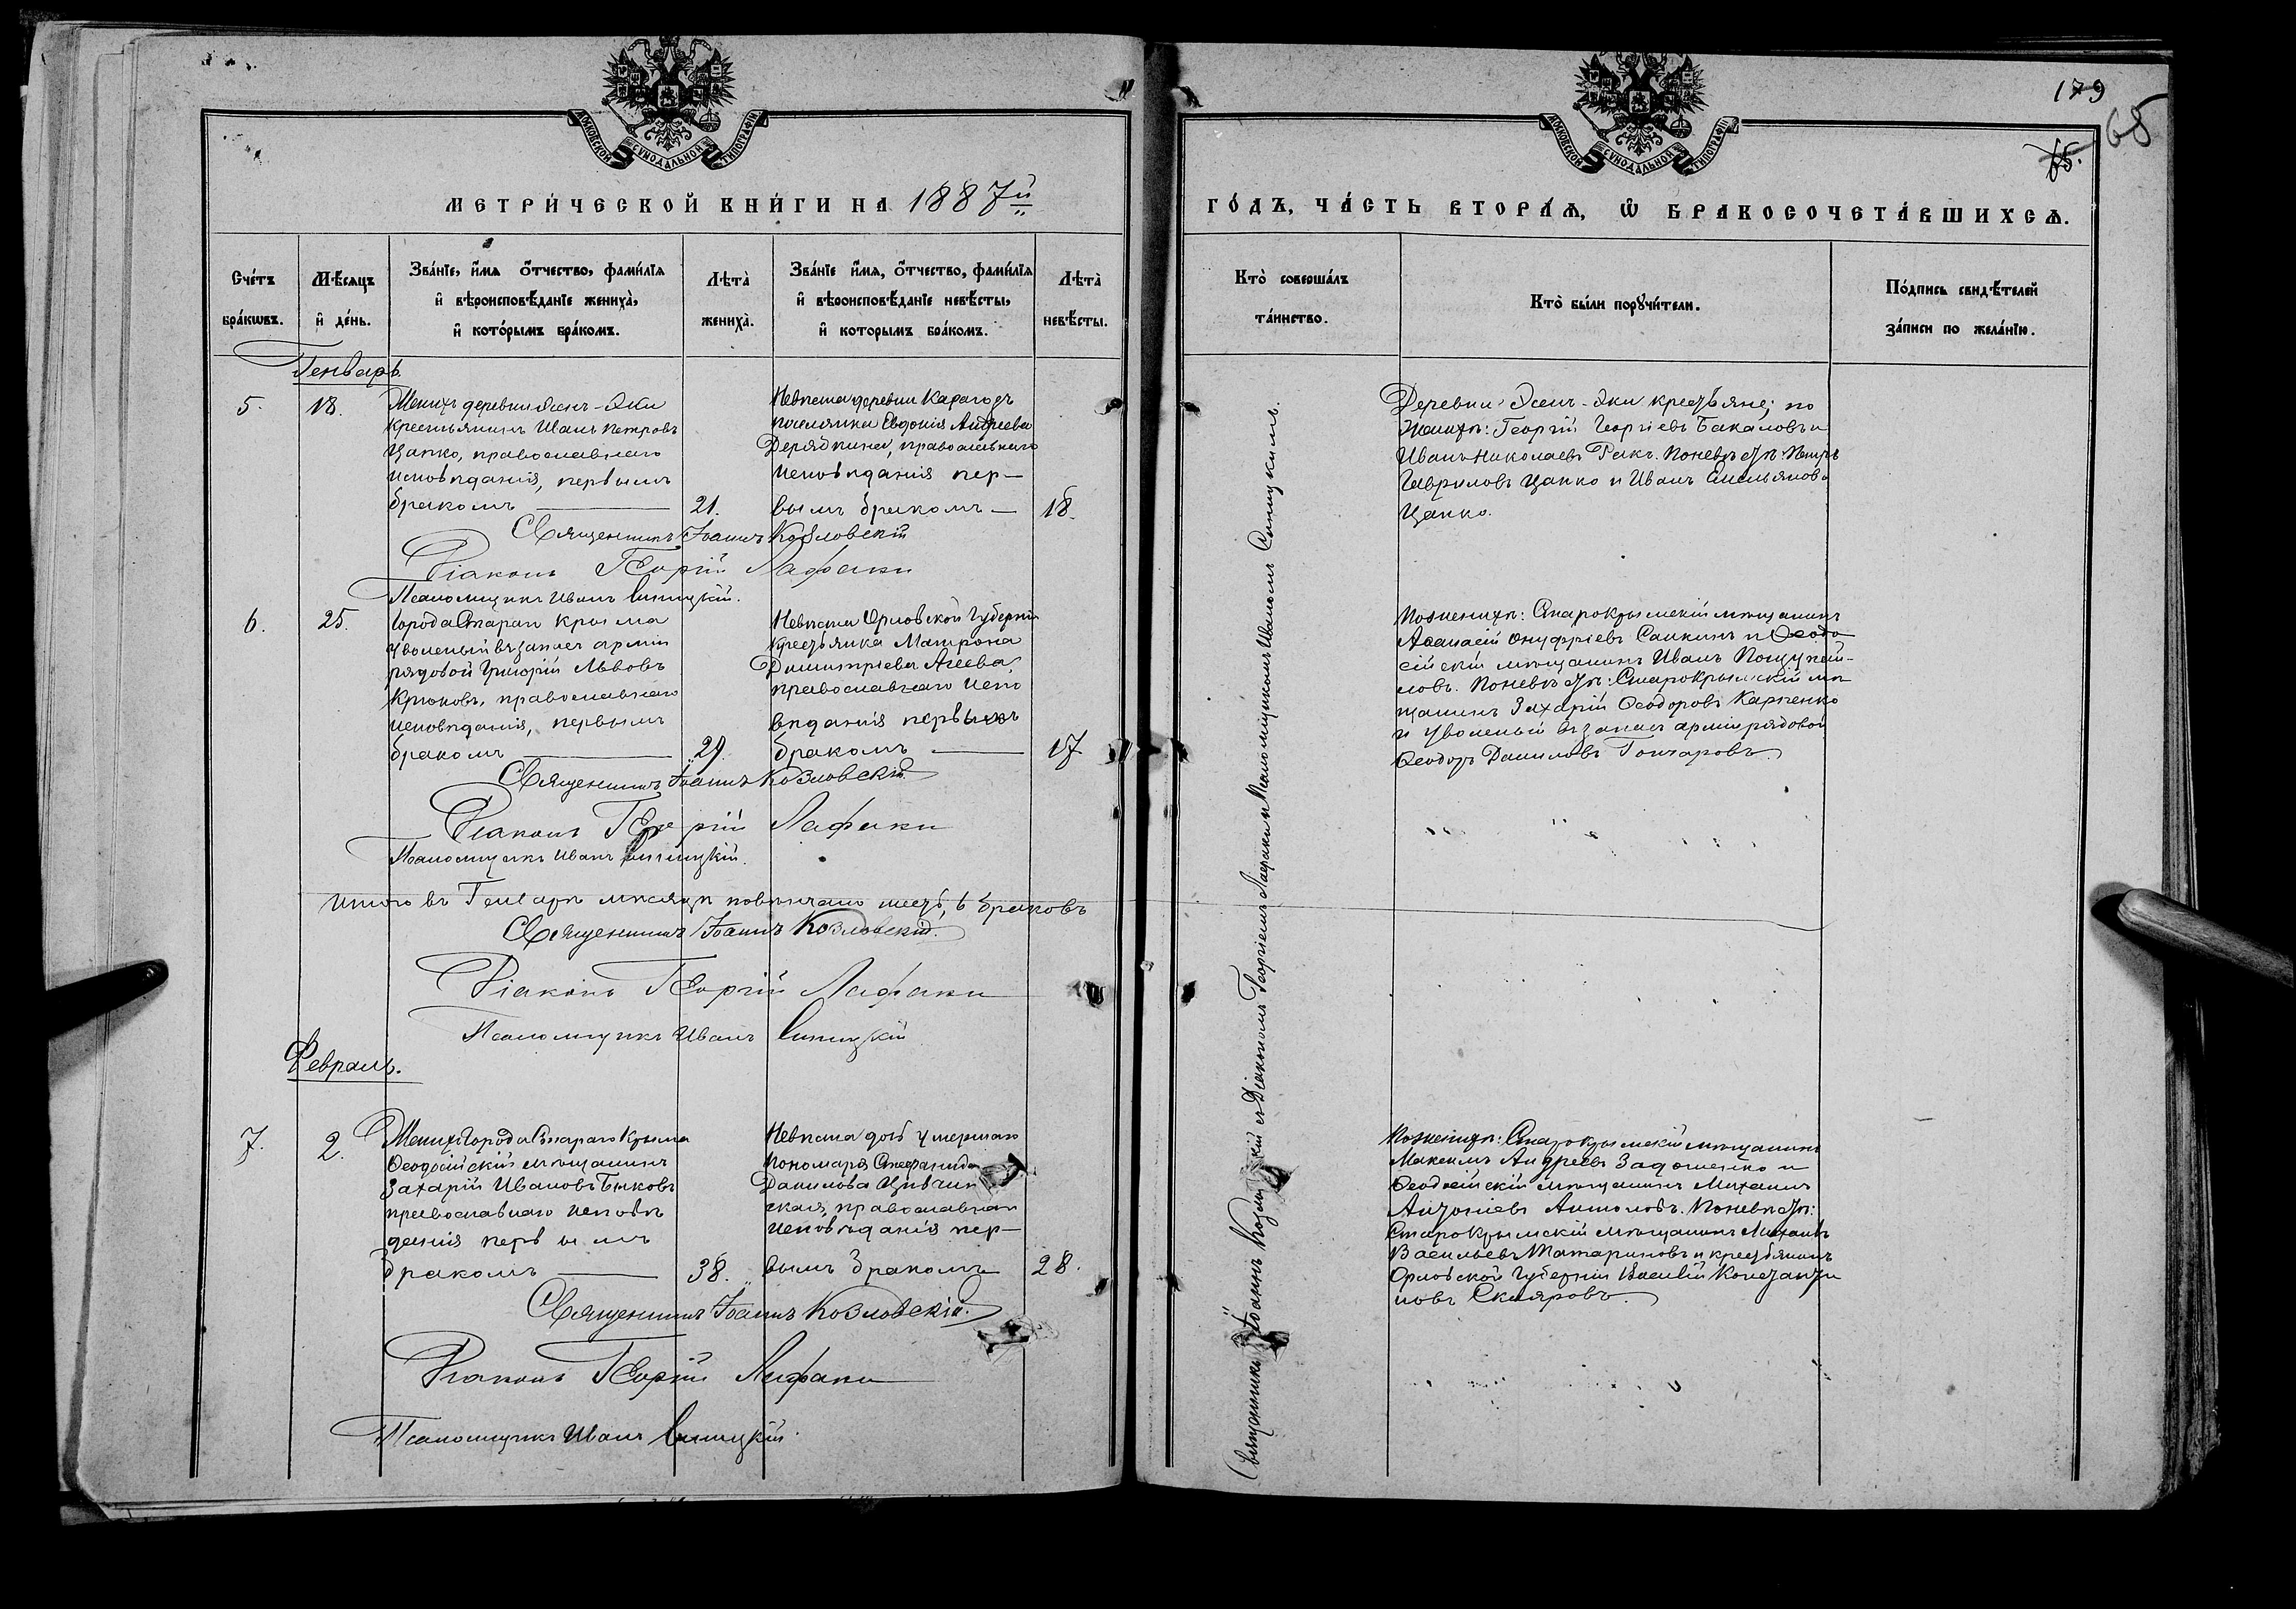 179
65.
68
МОСКОВСКОЙ СУНОДАЛЬНОЙ ТИПОГРАФІИ
МОСКОВСКОЙ СУНОДАЛЬНОЙ ТИПОГРАФІИ
МЕТРИЧЕСКОЙ КНИГИ НА 1887й
ГОДЪ, ЧАСТЬ ВТОРАЯ, Ѿ БРАКОСОЧЕТАВШИХСЯ.
Счетъ
браковъ.
Мѣсяцъ
и день.
Званіе, имя отчество, фамилія
и вѣроисповѣданіе жениха,
и которымъ бракомъ.
Лѣта
жениха.
Званіе имя, отчество, фамилія
и вѣроисповѣданіе невѣсты,
и которымъ бракомъ.
Лѣта
невѣсты.
Кто совершалъ
таинство.
Кто были поручители.
Подпись свидѣтелей
записи по желанію.
Генварь.
5.
18.
Женихъ деревни Эсенъ-Эки
крестьянинъ Иванъ Петровъ
Цапко, православнаго
исповѣданія, первымъ
бракомъ
21.
Невѣста деревни Карагозъ
поселянка Евдокія Андреева
Дерябкина, православнаго
исповѣданія пер-
вымъ бракомъ
18.
Деревни Эсенъ-Эки крестьяне; по
женихѣ: Георгій Георгіевъ Бакаловъ и
Иванъ Николаевъ Ракъ. По невѣстѣ: Петръ
Гавриловъ Цапко и Иванъ Емельяновъ
Цапко.
Священникъ Іоаннъ Козловскій
Діаконъ Георгій Лафаки
Псаломщикъ Иванъ Синицкій.
6.
25.
Города Стараго Крыма
уволеный въ запасъ арміи
рядовой Григорій Львовъ
Крюковъ, православнаго
исповѣданія, первымъ
бракомъ
29.
Невѣста Орловской Губерніи
крестьянка Матрона
Димитріева Агеева,
православнаго испо
вѣданія первымъ
бракомъ
17
По женихѣ: Старокрымскій мѣщанинъ
Аѳанасій Онуфріевъ Санкинъ и Ѳеодо
сійскій мѣщанинъ Иванъ
ловъ. По невѣстѣ: Старокрымскій мѣ
щанинъ Захарій Ѳеодоровъ Карпенко
и уволеный въ запасъ арміи рядовой
Ѳеодоръ Даниловъ Гончаровъ.
Священникъ Іоаннъ Козловскій
Діаконъ Георгій Лафаки
Псаломщикъ Иванъ Синицкій.
Итого въ Генварѣ мѣсяцѣ повѣнчано шесть, 6 браковъ
Священникъ Іоаннъ Козловскій.
Діаконъ Георгій Лафаки
Псаломщикъ Иванъ Синицкій
Февраль.
7.
2.
Женихъ Города Стараго Крыма
Ѳеодосійскій мѣщанинъ
Захарій Ивановъ Быковъ
православнаго исповѣ
данія первымъ
бракомъ
38.
Невѣста дочь умершаго
пономаря Стефанида
Данилова
ская, православнаго
исповѣданія пер-
вымъ бракомъ
28.
По женихѣ: Старокрымскій мѣщанинъ
Максимъ Андреевъ Задошенко и
Ѳеодосійскій мѣщанинъ Михаилъ
Антоніевъ Антоновъ. По невѣстѣ:
Старокрымскій мѣщанинъ Михаилъ
Васильевъ Татариновъ и крестьянинъ
Орловской Губерніи Василій Константи
новъ Скляровъ.
Священникъ Іоаннъ Козловскій.
Діаконъ Георгій Лафаки
Псаломщикъ Иванъ Синицкій
Священникъ Іоаннъ Козловскій съ Діакономъ Георгіемъ Лафаки и Псаломщикомъ Иваномъ Синицкимъ.